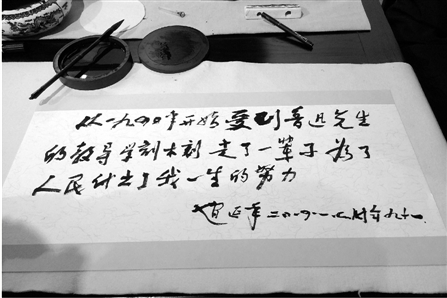 从一九四〇年开始受到鲁迅先生
的教导学刻木刻走了一辈子为了
人民付出了我一生的努力
赵延年二〇一〇·一·七时年九十一